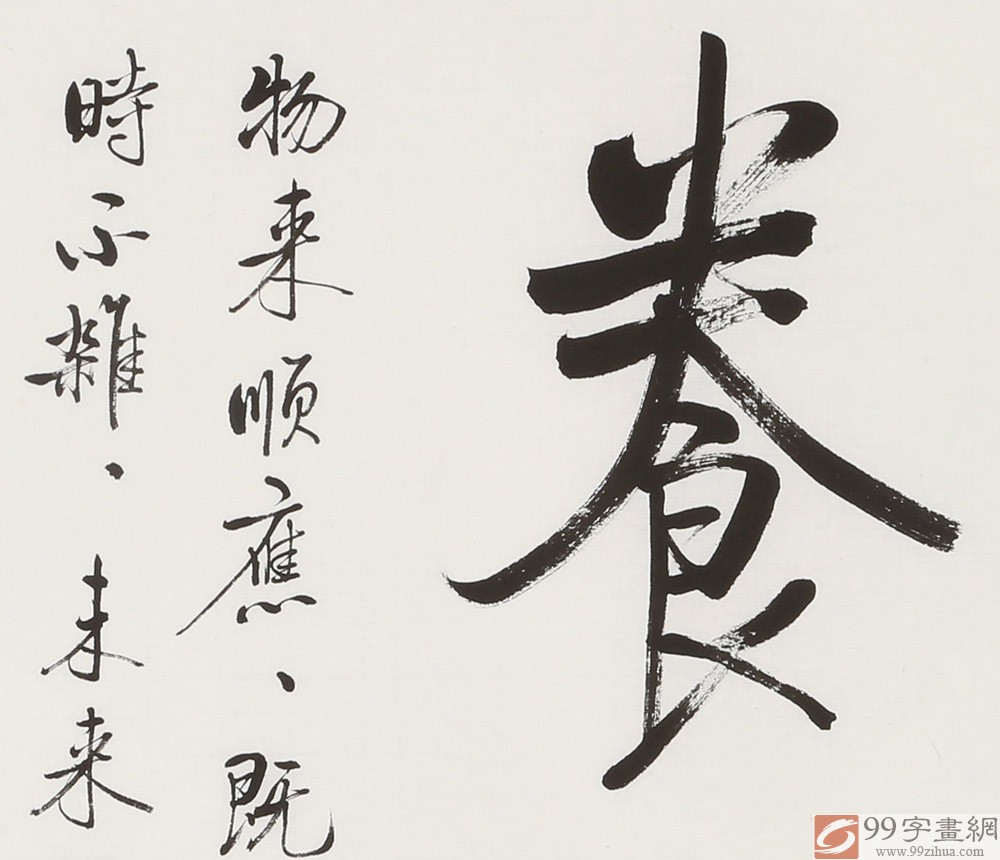 養
物来順應、既
時不雜、未来
99字畫網
www.99zihua.com